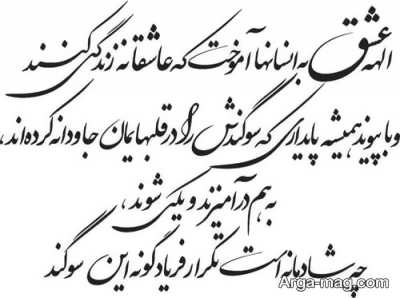 الهه عشق به انسانها آموخت که عاشقانه زندگی کنند
وبا پیوند همیشه پایداری که سوگندش را در قلبهایمان جاودانه کرده اند،
به هم درآمیزند و یکی شوند،
چه شادمانه است تکرار فریاد گونه این سوگند
Arga-mag.com